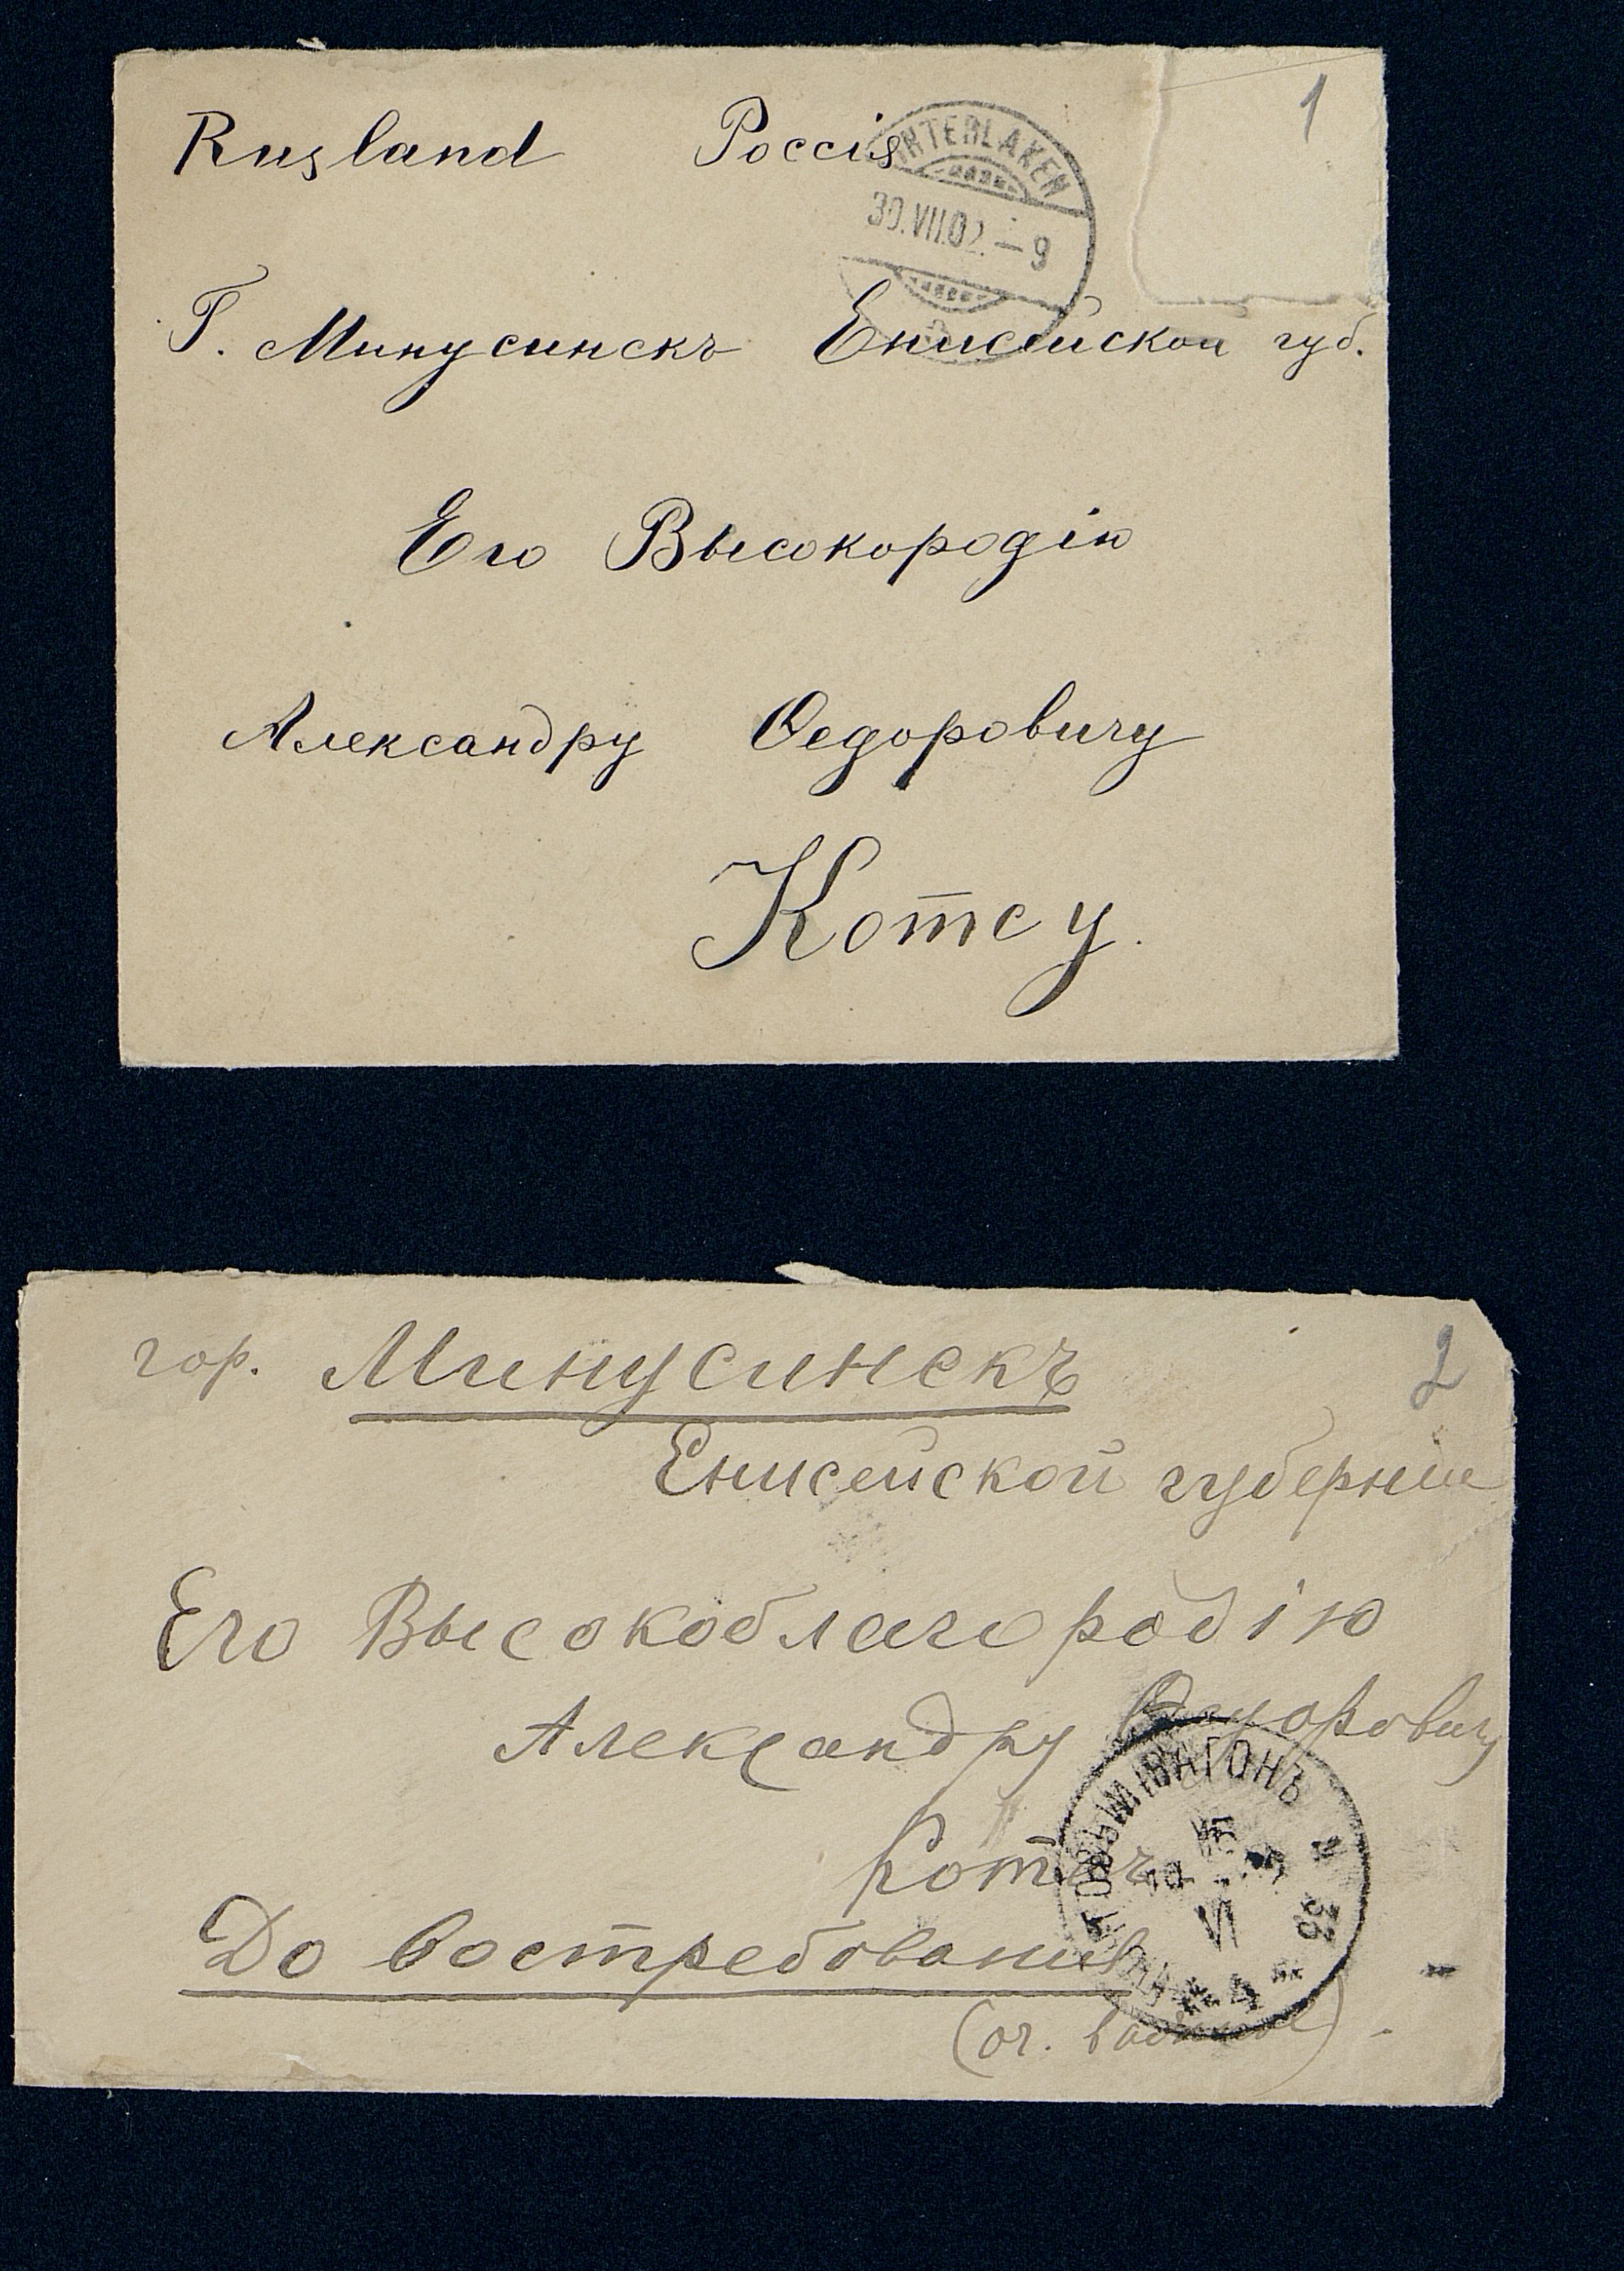 1
Rusland Россія
INTERLAKEN
30.VII.02.–9
Г. Минусинскъ Енисейской губ.
Его Высокородію
Александру Ѳедоровичу
Котсу.
2
гор. Минусинскъ
Енисейской губерніи
Его Высокоблагородію
Александру Ѳедоровичу
Котсъ
ПОЧТОВЫЙ ВАГОНЪ
VI
До востребованія
(оч. важное).